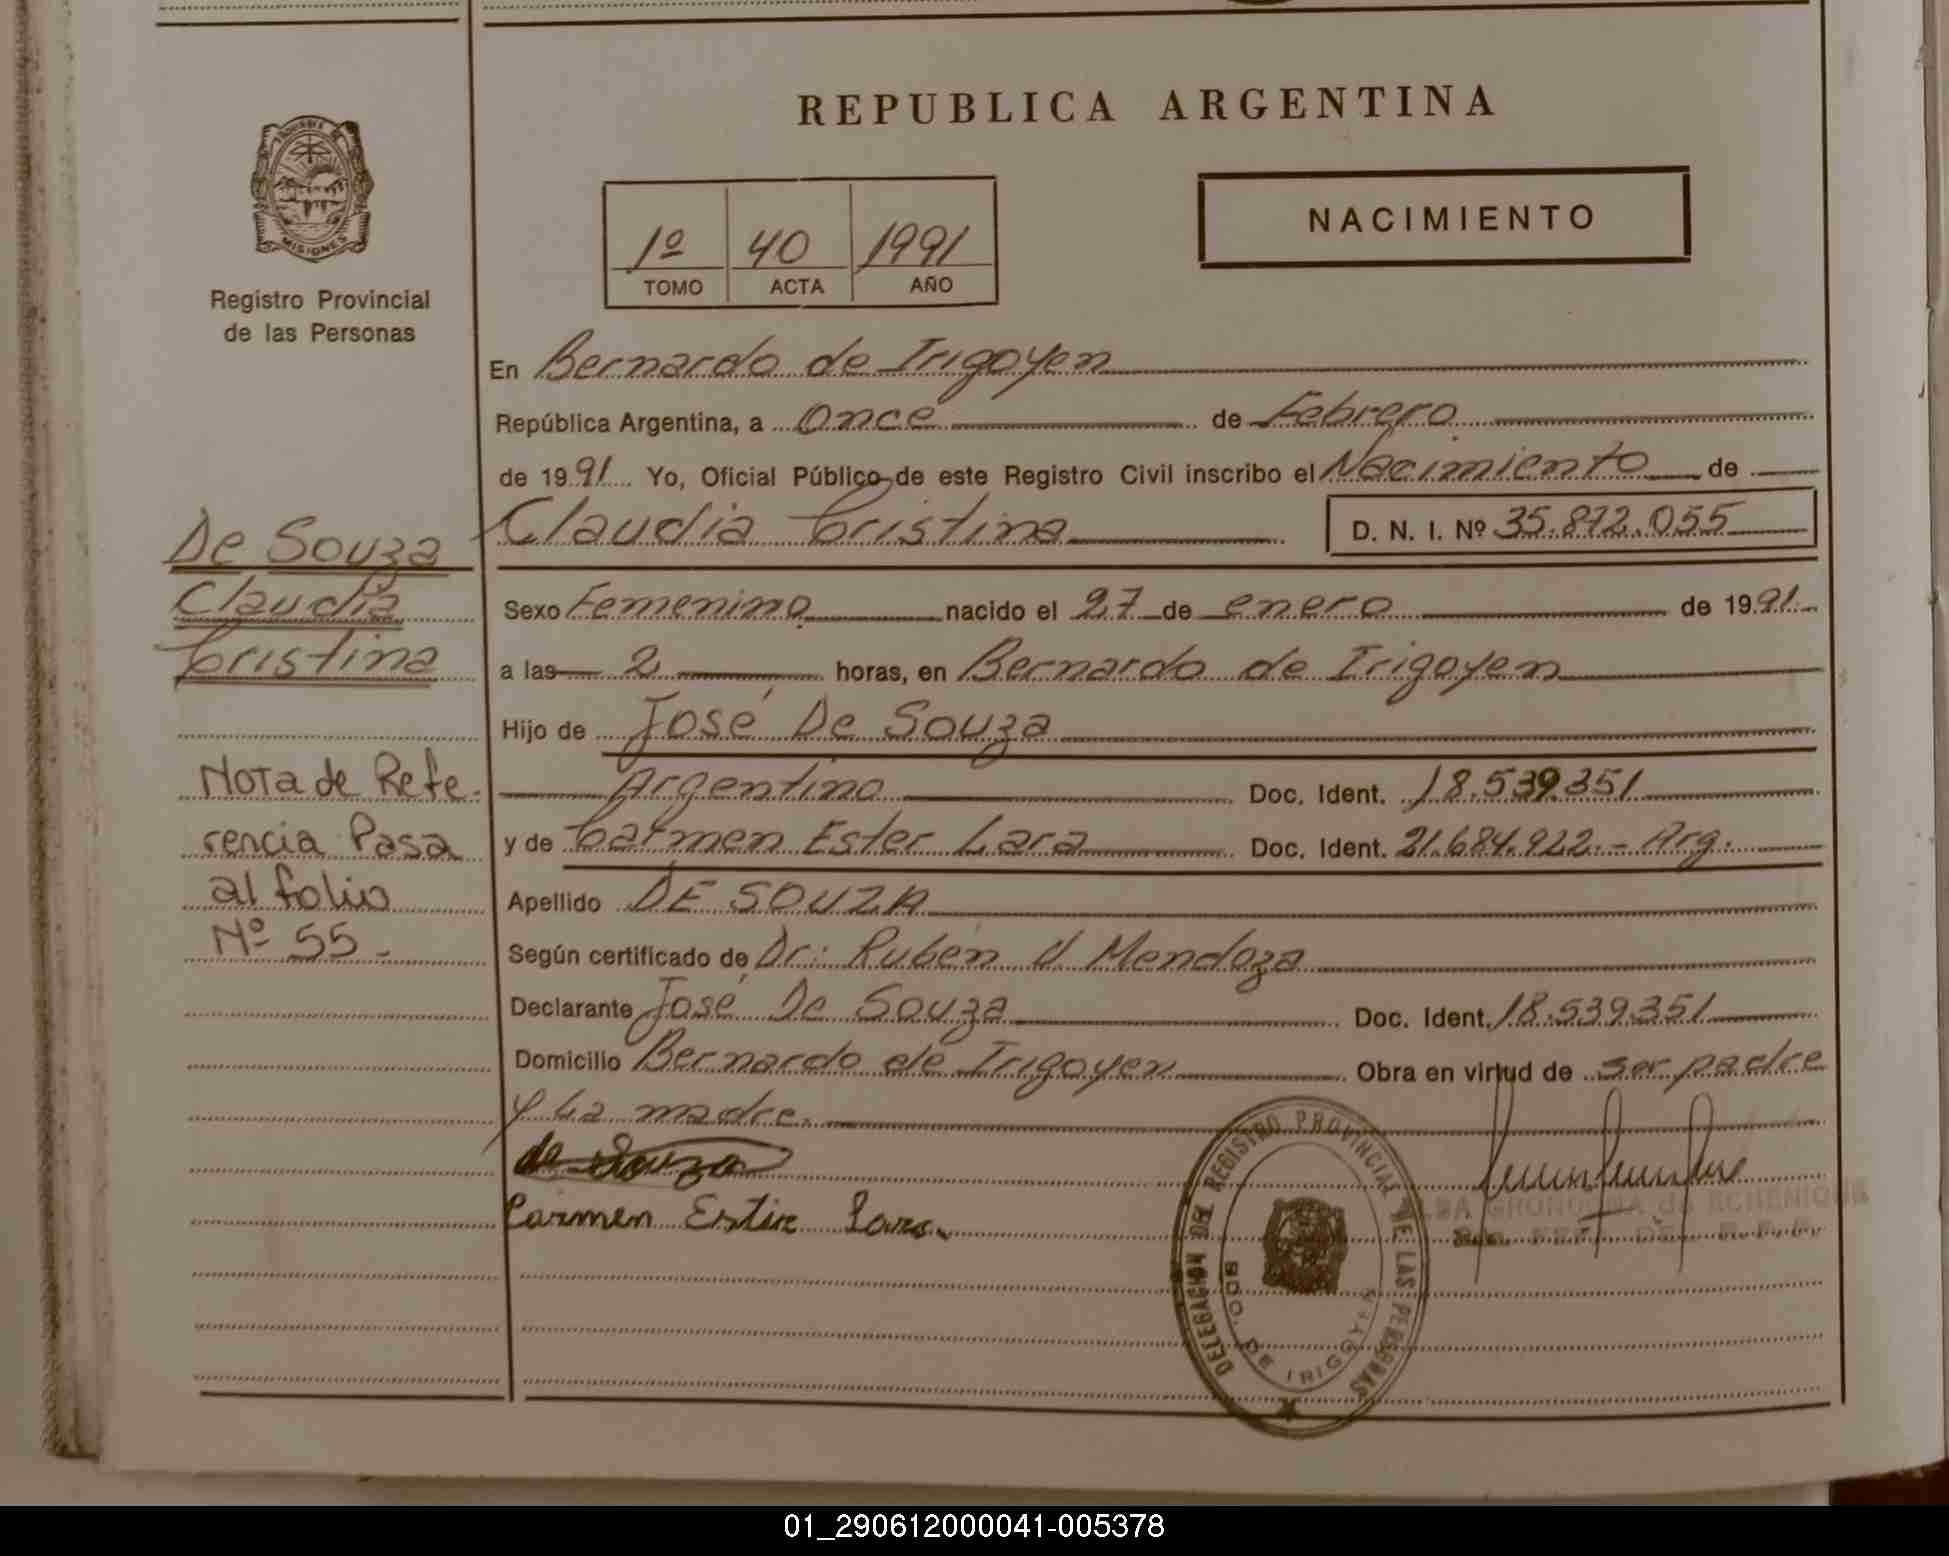 REPUBLICA ARGENTINA
PROVINCIA DE
MISIONES
Registro Provincial
de las Personas
1º 40 1991
TOMO ACTA AÑO
NACIMIENTO
En Bernardo de Irigoyen
República Argentina, a Once de Febrero
de 1991 Yo, Oficial Público de este Registro Civil inscribo el Nacimiento de
Claudia Cristina D. N. I. Nº 35.872.055
Sexo Femenino nacido el 27 de enero de 1991
a las 2 horas, en Bernardo de Irigoyen
Hijo de José De Souza
Argentino Doc. Ident. 18.539.351
y de Carmen Ester Lara Doc. Ident. 21.684.922.- Arg.
Apellido DE SOUZA
Según certificado de Dr: Rubén V. Mendoza
Declarante José De Souza Doc. Ident. 18.539.351
Domicilio Bernardo de Irigoyen Obra en virtud de ser padre
y La madre.
de Souza
Carmen Ester Lara.
De Souza
Claudia
Cristina
Nota de Refe-
rencia Pasa
al folio
Nº 55.-
DELEGACION DEL REGISTRO PROVINCIAL DE LAS PERSONAS
BDO. DE IRIGOYEN
GRONDONA de ECHENIQUE
01_290612000041-005378